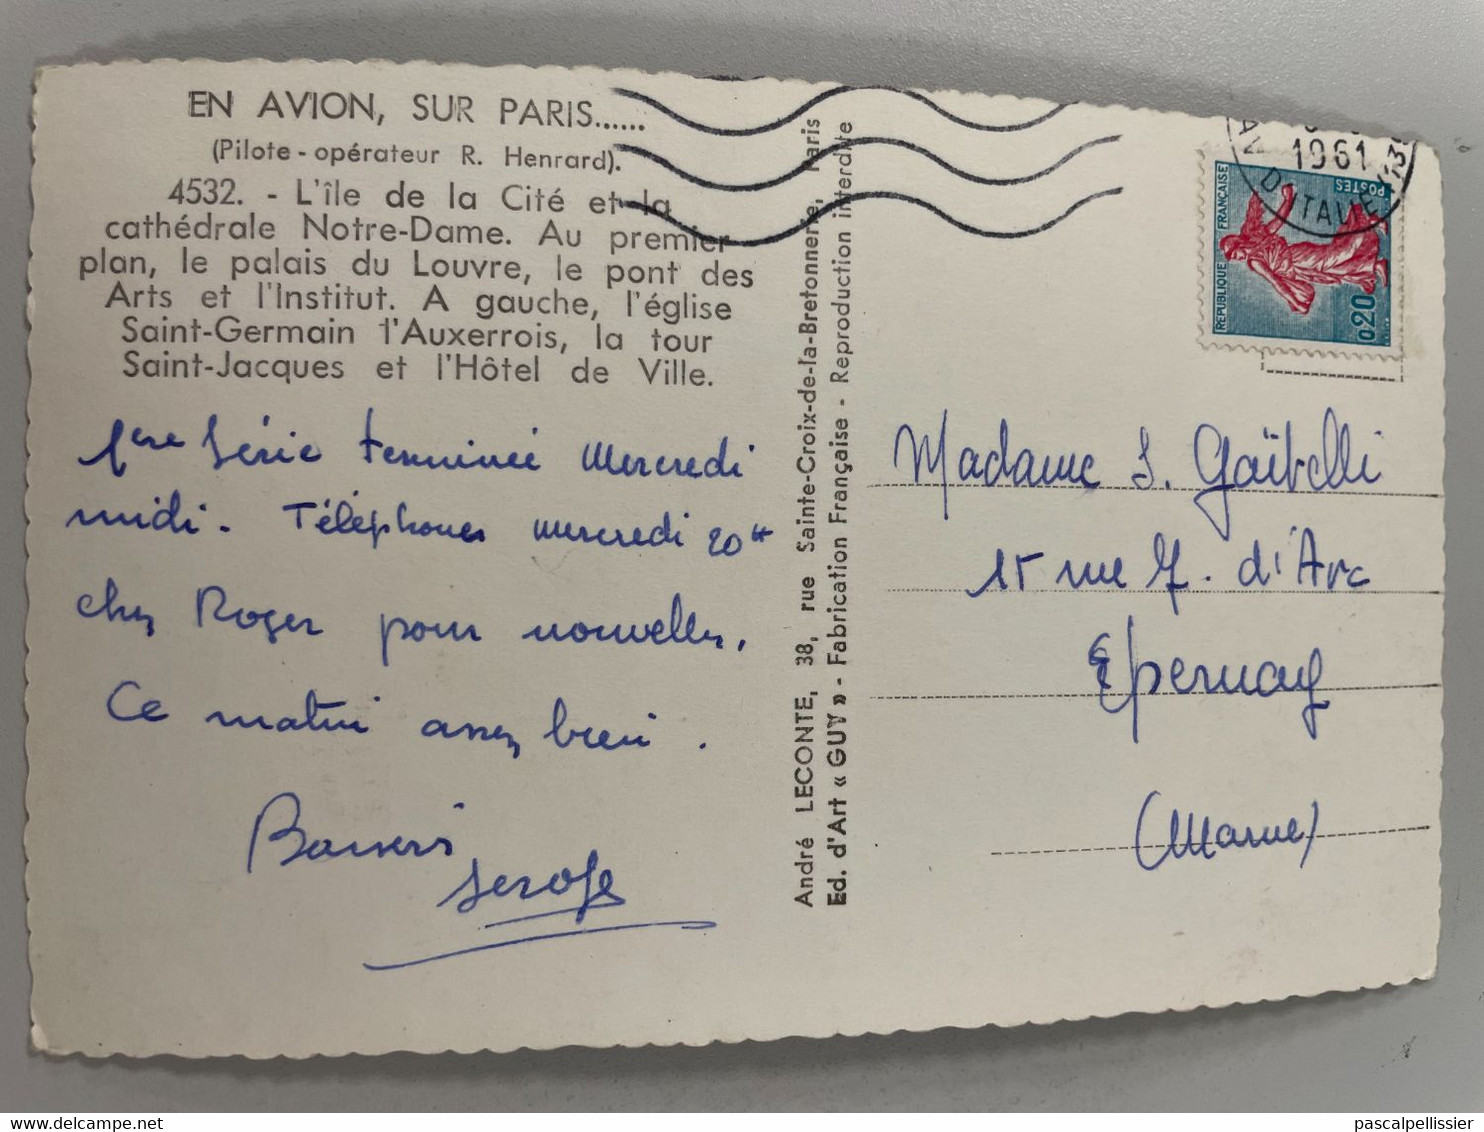 EN AVION, SUR PARIS......
(Pilote-opérateur R. Henrard).
4532. - L'île de la Cité et la
cathédrale Notre-Dame. Au premier
plan, le palais du Louvre, le pont des
Arts et l'Institut. A gauche, l'église
Saint-Germain l'Auxerrois, la tour
Saint-Jacques et l'Hôtel de Ville.
1ere Série terminée Mercredi
midi. Téléphones mercredi 20H
chez Roger pour nouvelles.
Ce matin assez bien.
Baisers
André LECONTE, 38, rue Sainte-Croix-de-la-Bretonnerie, Paris
Ed. d'Art « GUY » - Fabrication Française - Reproduction interdite
1961
AV. D'ITALIE
RÉPUBLIQUE FRANÇAISE
POSTES
0,20
Madame S. Gaïbelli
15 rue J. d'Arc
Epernay
(Marne)
www.delcampe.net
pascalpellissier